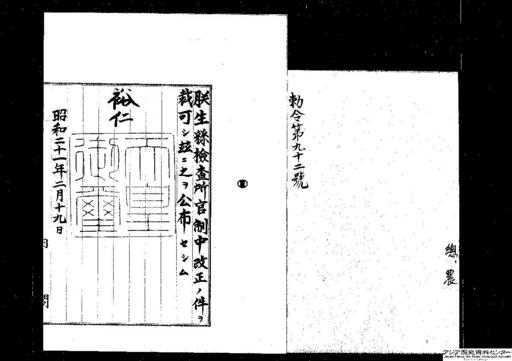 勅令第九十二號
總、農
朕生絲檢査所官制中改正ノ件ヲ
裁可シ玆ニ之ヲ公布セシム
裕仁
天皇御璽
昭和二十一年二月十九日
内閣
アジア歴史資料センター